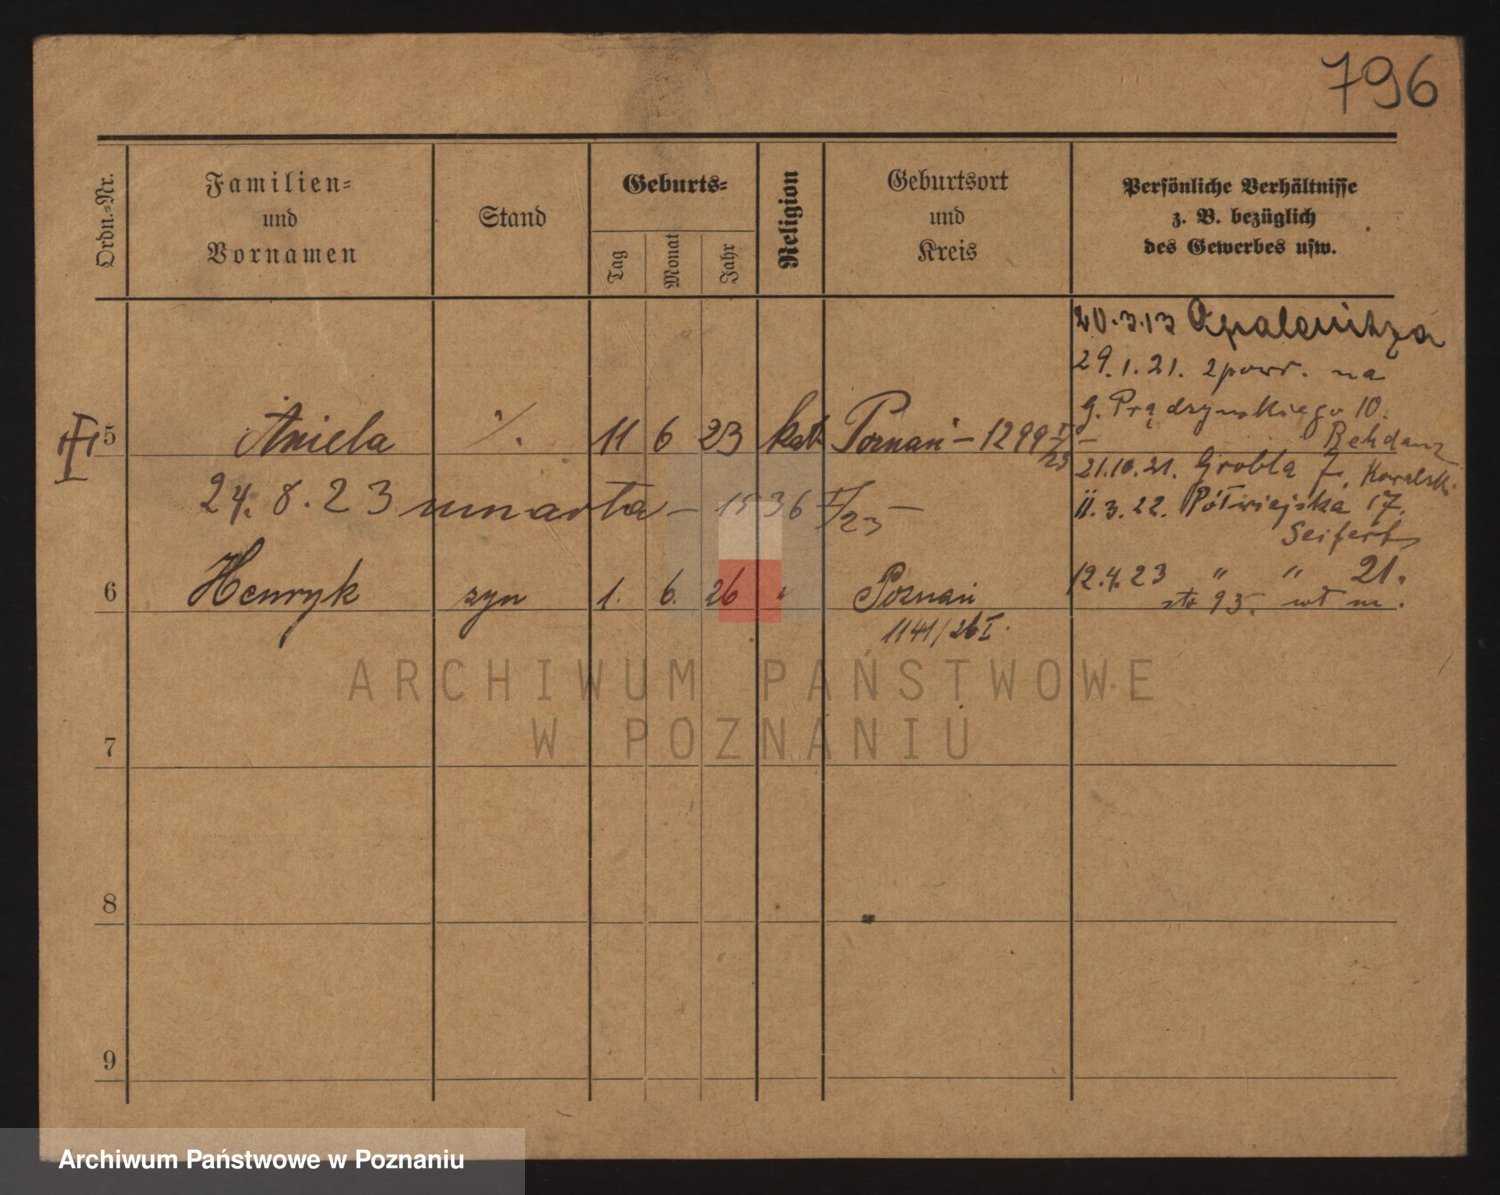 796
Ordn.=Nr.
Familien=
und
Vornamen
Stand
Geburts=
Tag
Monat
Jahr
Religion
Geburtsort
und
Kreis
Persönliche Verhältnisse
z. B. bezüglich
des Gewerbes usw.
20.3.13 Opalenitza
29.1.21. zpowr. na
G. Prądzyńskiego 10.
5 Aniela ·/. 11 6 23 kat Poznań – 1299 I/23 –
21.10.21. Grobla 7, Kowalski
24.8.23 umarła – 1536 I/23 –
11.3.22. Półwiejska 17.
Seifert
6 Henryk syn 1. 6. 26 " Poznań
1141/26 I.
12.4.23 " " 21.
7
8
9
ARCHIWUM PAŃSTWOWE
W POZNANIU
Archiwum Państwowe w Poznaniu